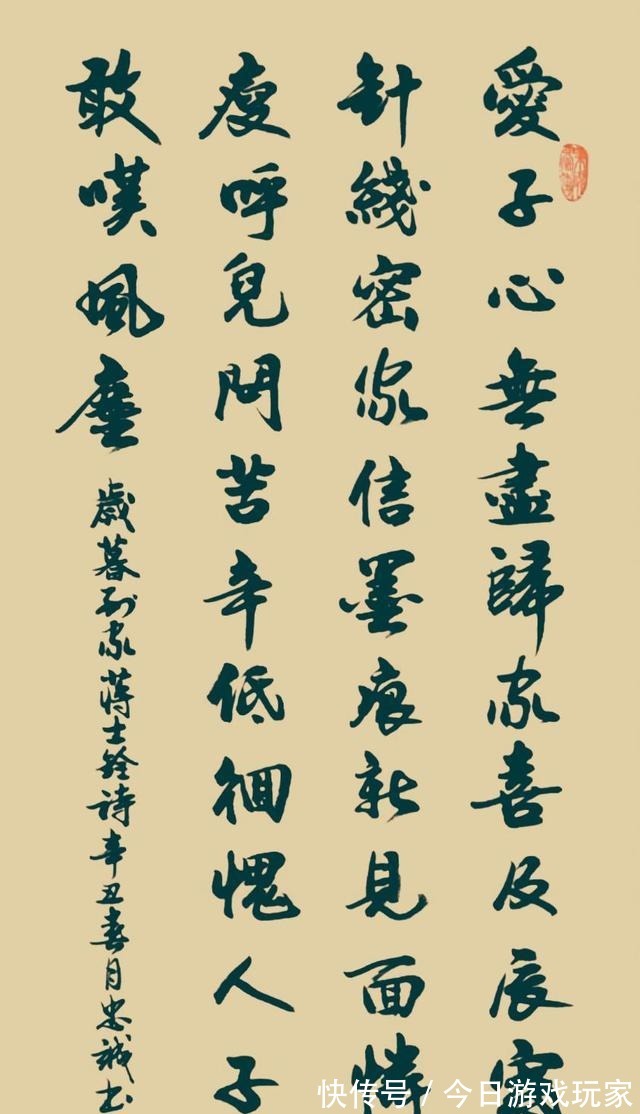 愛子心無盡歸家喜及辰寒
針綫密家信墨痕新見面憐
瘦呼兒問苦辛低徊愧人子
敢嘆風塵
歲暮到家蔣士銓詩辛丑春月忠誠书
快传号/今日游戏玩家